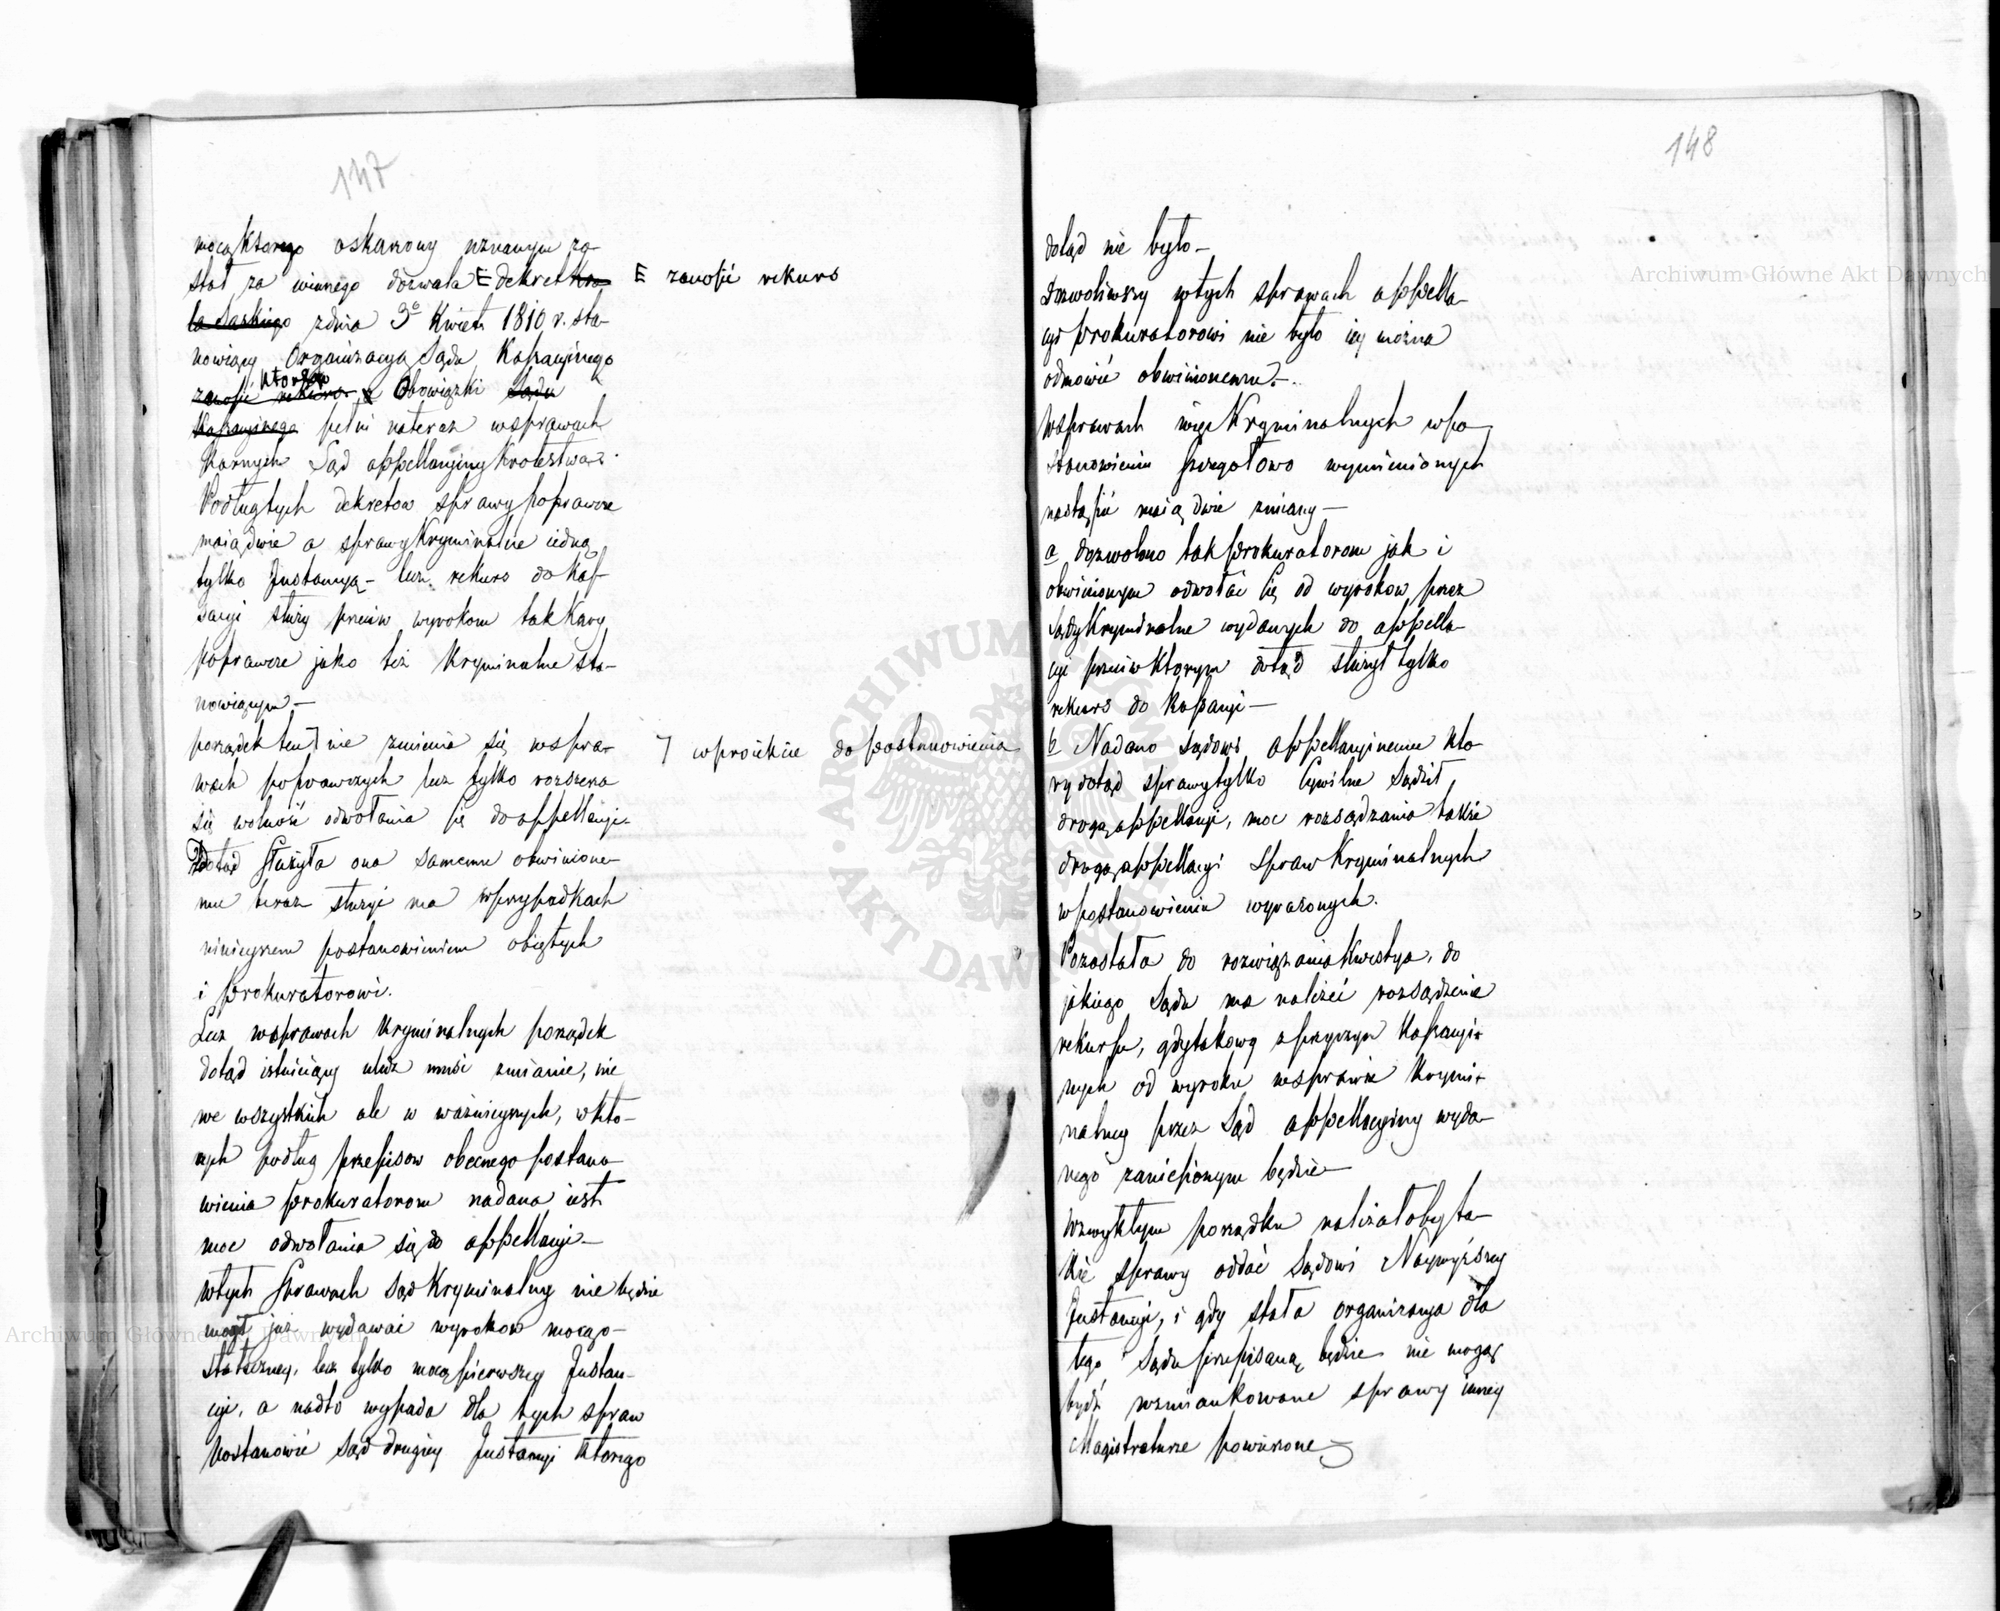 147
mocą ktorego oskarzony uznanym zo-
stał za winnego dozwala E dekret kro
E zanosić rekurs
la Saskiego z dnia 3º Kwiet. 1810 r. sta-
nowiący Organizacyą Sądu Kassacyinego
ktorego
zanosić rekurs Obowiązki Sądu
Kassacyinego pełni nateraz w sprawach
Karnych Sąd appellacyiny Krolestwa.
Podług tych dekretow sprawy poprawcze
maią dwie a sprawy Kryminalne iedną
tylko Instancyą - lecz rekurs do Kas-
sacyi służy przeciw wyrokom tak Kary
poprawcze jako też Kryminalne sta-
nowiącym -
porządek ten ⁊ nie zmienia się w spra-
⁊ w proiekcie do postanowienia
wach poprawczych lecz tylko rozszerza
się wolność odwołania się do appellacyi
Dotąd służyła ona samemu obwinione-
mu teraz służyć ma w przypadkach
ninieyszem postanowieniem obiętych
i prokuratorowi.
Lecz w sprawach Kryminalnych porządek
dotąd istnieiący uledz musi zmianie, nie
we wszystkich ale w ważnieyszych, w kto-
rych podług przepisow obecnego postano-
wienia prokuratorom nadana iest
moc odwołania się do appellacyi -
w tych sprawach Sąd Kryminalny nie będzie
mógł już wydawać wyrokow mocą o-
stateczney, lecz tylko mocą pierwszey Instan-
cyi, a nadto wypada dla tych spraw
postanowić Sąd drugiey Instancyi ktorego
148
dotąd nie było -
dozwoliwszy w tych sprawach appella-
cyi prokuratorowi nie było iey można
odmowić obwinionemu. -
W sprawach więc Kryminalnych w po-
stanowieniu szczegołowo wymienionych
nastąpić maią dwie zmiany -
a dozwolono tak prokuratorom jak i
obwinionym odwołać się od wyrokow przez
Sądy Kryminalne wydanych do appella-
cyi przeciw ktorym dotąd służył tylko
rekurs do Kassacyi -
b Nadano Sądowi appellacyinemu kto-
ry dotąd sprawy tylko Cywilne Sądził,
drogą appellacyi, moc rozsądzania także
drogą appellacyi spraw Kryminalnych
w postanowieniu wyrażonych.
Pozostała do rozwiązania Kwestya, do
jakiego Sądu ma należeć rozsądzenie
rekursu, gdy takowy z przyczyn Kassacyi-
nych od wyroku w sprawie Krymi-
nalney przez Sąd appellacyiny wyda-
nego zaniesionym będzie -
W zwykłym porządku należałoby ta-
kie sprawy oddać Sądowi Naywyższey
Instancyi, i gdy stała organizacya dla
tego Sądu przepisaną będzie nie mogą
bydź wzmiankowane sprawy inney
Magistraturze powierzone -
Archiwum Główne Akt Dawnych
Archiwum Główne Akt Dawnych